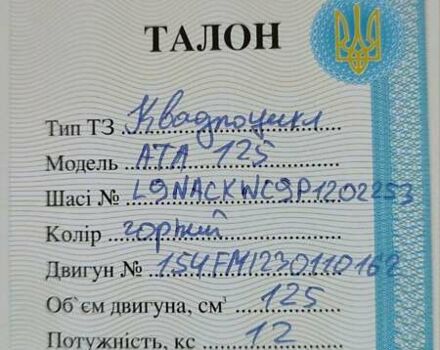 ТАЛОН
Тип ТЗ Квадроцикл
Модель ATA 125
Шасі № L9NACKWC9P1202253
Колір
Двигун № 154FMI230110162
Об`єм двигуна, см³ 125
Потужність, кс 12